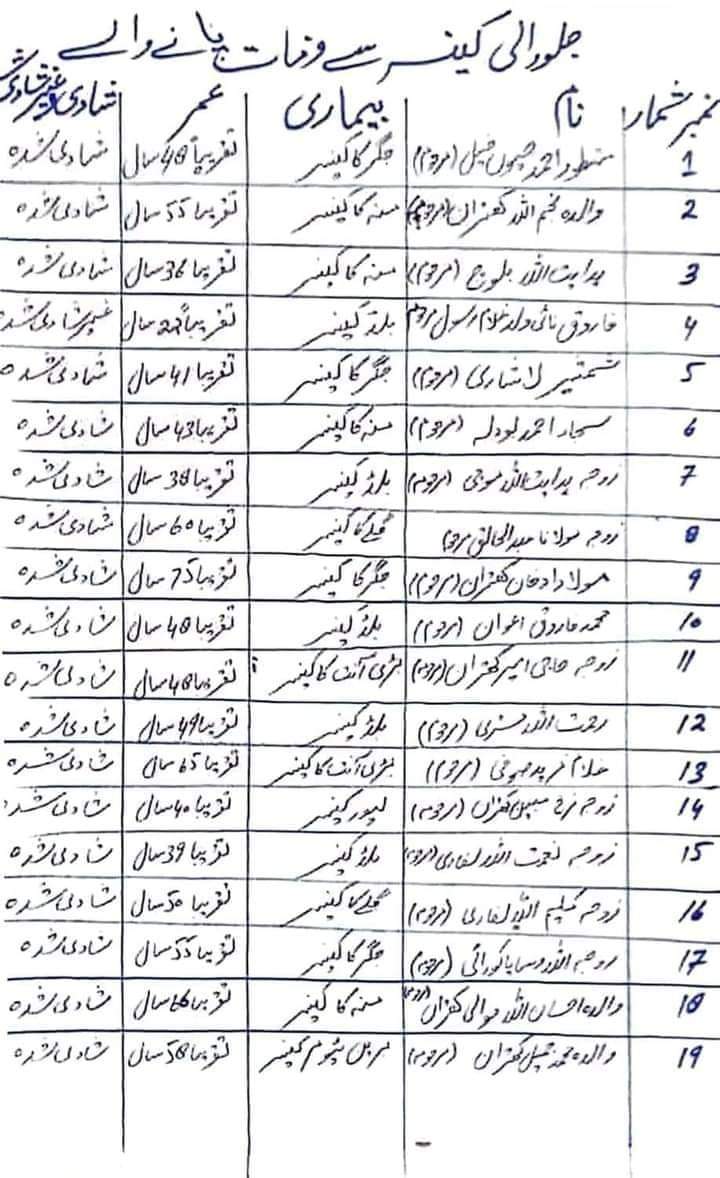 جلوالی کینسر سے وفات پانے والے
نمبر شمار نام بیماری عمر شادی وغیر شادی
1 منظور احمد (مرحوم) جگر کا کینسر تقریباً 48 سال شادی شدہ
2 والدہ نجم اللہ کھتران (مرحوم) منہ کا کینسر تقریبا 55 سال شادی شدہ
3 ہدایت اللہ بلوچ (مرحوم) منہ کا کینسر تقریبا 36 سال شادی شدہ
4 فاروق نائی ولد غلام رسول مرحوم بلڈ کینسر تقریباً 22 سال غیر شادی شدہ
5 شمشیر لاشاری (مرحوم) جگر کا کینسر تقریبا 41 سال شادی شدہ
6 سجاد احمد بودلہ (مرحوم) منہ کا کینسر تقریبا 43 سال شادی شدہ
7 زوجہ ہدایت اللہ موچی (مرحوم) بلڈ کینسر تقریبا 38 سال شادی شدہ
8 زوجہ مولانا عبدالخالق مرحوم گلے کا کینسر تقریبا 60 سال شادی شدہ
9 مولاداد خان کھتران (مرحوم) جگر کا کینسر تقریبا 75 سال شادی شدہ
10 محمد فاروق اعوان (مرحوم) بلڈ کینسر تقریبا 48 سال شادی شدہ
11 زوجہ حاجی امیر کھتران (مرحوم) بڑی آنت کا کینسر تقریبا 48 سال شادی شدہ
12 رحمت اللہ مستری (مرحوم) بلڈ کینسر تقریبا 49 سال شادی شدہ
13 غلام فرید موچی (مرحوم) بڑی آنت کا کینسر تقریبا 65 سال شادی شدہ
14 زوجہ کھتران (مرحوم) لیور کینسر تقریبا 40 سال شادی شدہ
15 زوجہ نعمت اللہ لغاری (مرحوم) بلڈ کینسر تقریبا 39 سال شادی شدہ
16 زوجہ کلیم اللہ لغاری (مرحوم) گلے کا کینسر تقریبا 50 سال شادی شدہ
17 زوجہ اللہ وسایا کورائی (مرحوم) جگر کا کینسر تقریبا 55 سال شادی شدہ
18 والدہ احسان اللہ موالی کھتران (مرحوم) منہ کا کینسر تقریبا 66 سال شادی شدہ
19 والدہ محمد جمیل کھتران (مرحوم) کینسر تقریبا 58 سال شادی شدہ